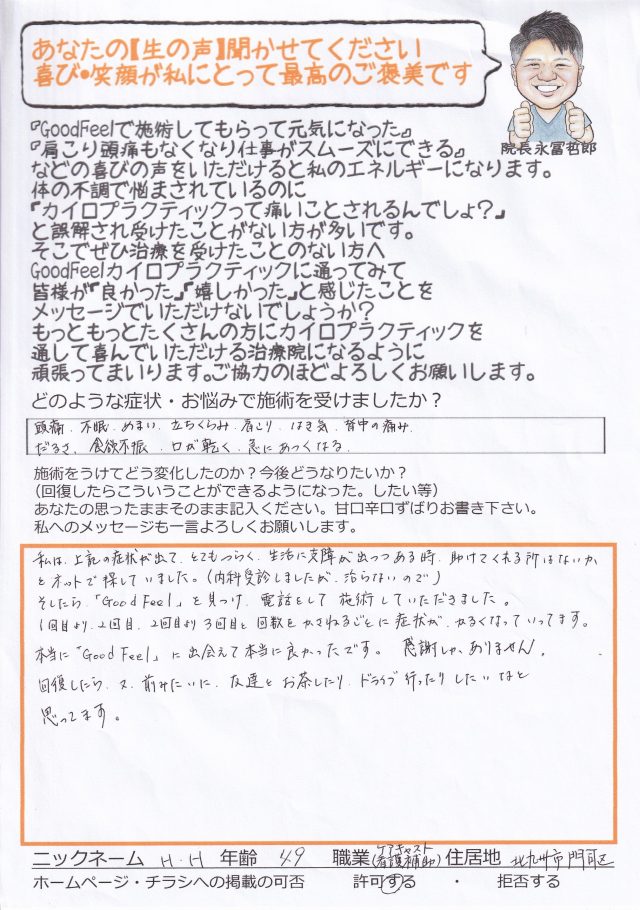 あなたの【生の声】聞かせてください
喜び・笑顔が私にとって最高のご褒美です
院長永冨哲郎
『GoodFeelで施術してもらって元気になった』
『肩こり頭痛もなくなり仕事がスムーズにできる』
などの喜びの声をいただけると私のエネルギーになります。
体の不調で悩まされているのに
「カイロプラクティックって痛いことされるんでしょ？」
と誤解され受けたことがない方が多いです。
そこでぜひ治療を受けたことのない方へ
GoodFeelカイロプラクティックに通ってみて
皆様が「良かった」「嬉しかった」と感じたことを
メッセージでいただけないでしょうか？
もっともっとたくさんの方にカイロプラクティックを
通して喜んでいただける治療院になるように
頑張ってまいります。ご協力のほどよろしくお願いします。
どのような症状・お悩みで施術を受けましたか？
頭痛、不眠、めまい、立ちくらみ、肩こり、はき気、背中の痛み、
だるさ、食欲不振、口が乾く、急にあつくなる、
施術をうけてどう変化したのか？今後どうなりたいか？
（回復したらこういうことができるようになった。したい等）
あなたの思ったままそのまま記入ください。甘口辛口ずばりお書き下さい。
私へのメッセージも一言よろしくお願いします。
私は、上記の症状が出て、とてもつらく、生活に支障が出つつある時、助けてくれる所はないか
とネットで探していました。（内科受診しましたが、治らないので）
そしたら、「Good Feel」を見つけ、電話をして施術していただきました。
1回目より、2回目、2回目より3回目と回数をかさねるごとに症状が、かるくなっていってます。
本当に「Good Feel」に出会えて本当に良かったです。感謝しかありません。
回復したら、又、前みたいに、友達とお茶したり、ドライブ行ったりしたいなと
思ってます。
ニックネーム H.H 年齢 49 職業 ケアキャスト（看護補助） 住居地 北九州市門司区
ホームページ・チラシへの掲載の可否 許可する ・ 拒否する